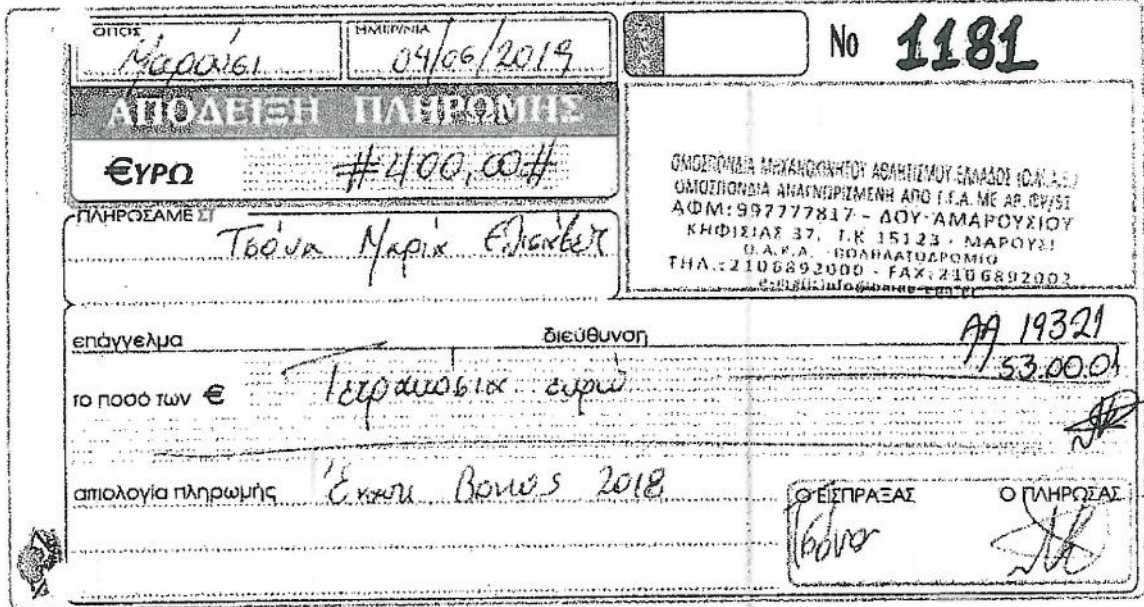 ΟΠΟΣ
Μαρούσι
ΗΜΕΡ/ΝΙΑ
04/06/2019
No 1181
ΑΠΟΔΕΙΞΗ ΠΛΗΡΩΜΗΣ
€ΥΡΩ #400,00#
ΟΜΟΣΠΟΝΔΙΑ ΜΗΧΑΝΟΚΙΝΗΤΟΥ ΑΘΛΗΤΙΣΜΟΥ ΕΛΛΑΔΟΣ (Ο.Μ.Α.Ε.)
ΟΜΟΣΠΟΝΔΙΑ ΑΝΑΓΝΩΡΙΣΜΕΝΗ ΑΠΟ Γ.Γ.Α. ΜΕ ΑΡ.
ΑΦΜ: 997777817 - ΔΟΥ ΑΜΑΡΟΥΣΙΟΥ
ΚΗΦΙΣΙΑΣ 37, Τ.Κ 15123 - ΜΑΡΟΥΣΙ
Ο.Α.Κ.Α. - ΠΟΔΗΛΑΤΟΔΡΟΜΙΟ
ΤΗΛ.: 2106892000 - FAX: 2106892002
ΠΛΗΡΩΣΑΜΕ ΣΤ
Τσόνα Μαρία Ελισάβετ
επάγγελμα
διεύθυνση
ΑΑ 19321
53.00.01
το ποσό των €
Τετρακόσια ευρώ
αιτιολογία πληρωμής
Έναντι Βονυς 2018
Ο ΕΙΣΠΡΑΞΑΣ
Ο ΠΛΗΡΩΣΑΣ
Τσόνα